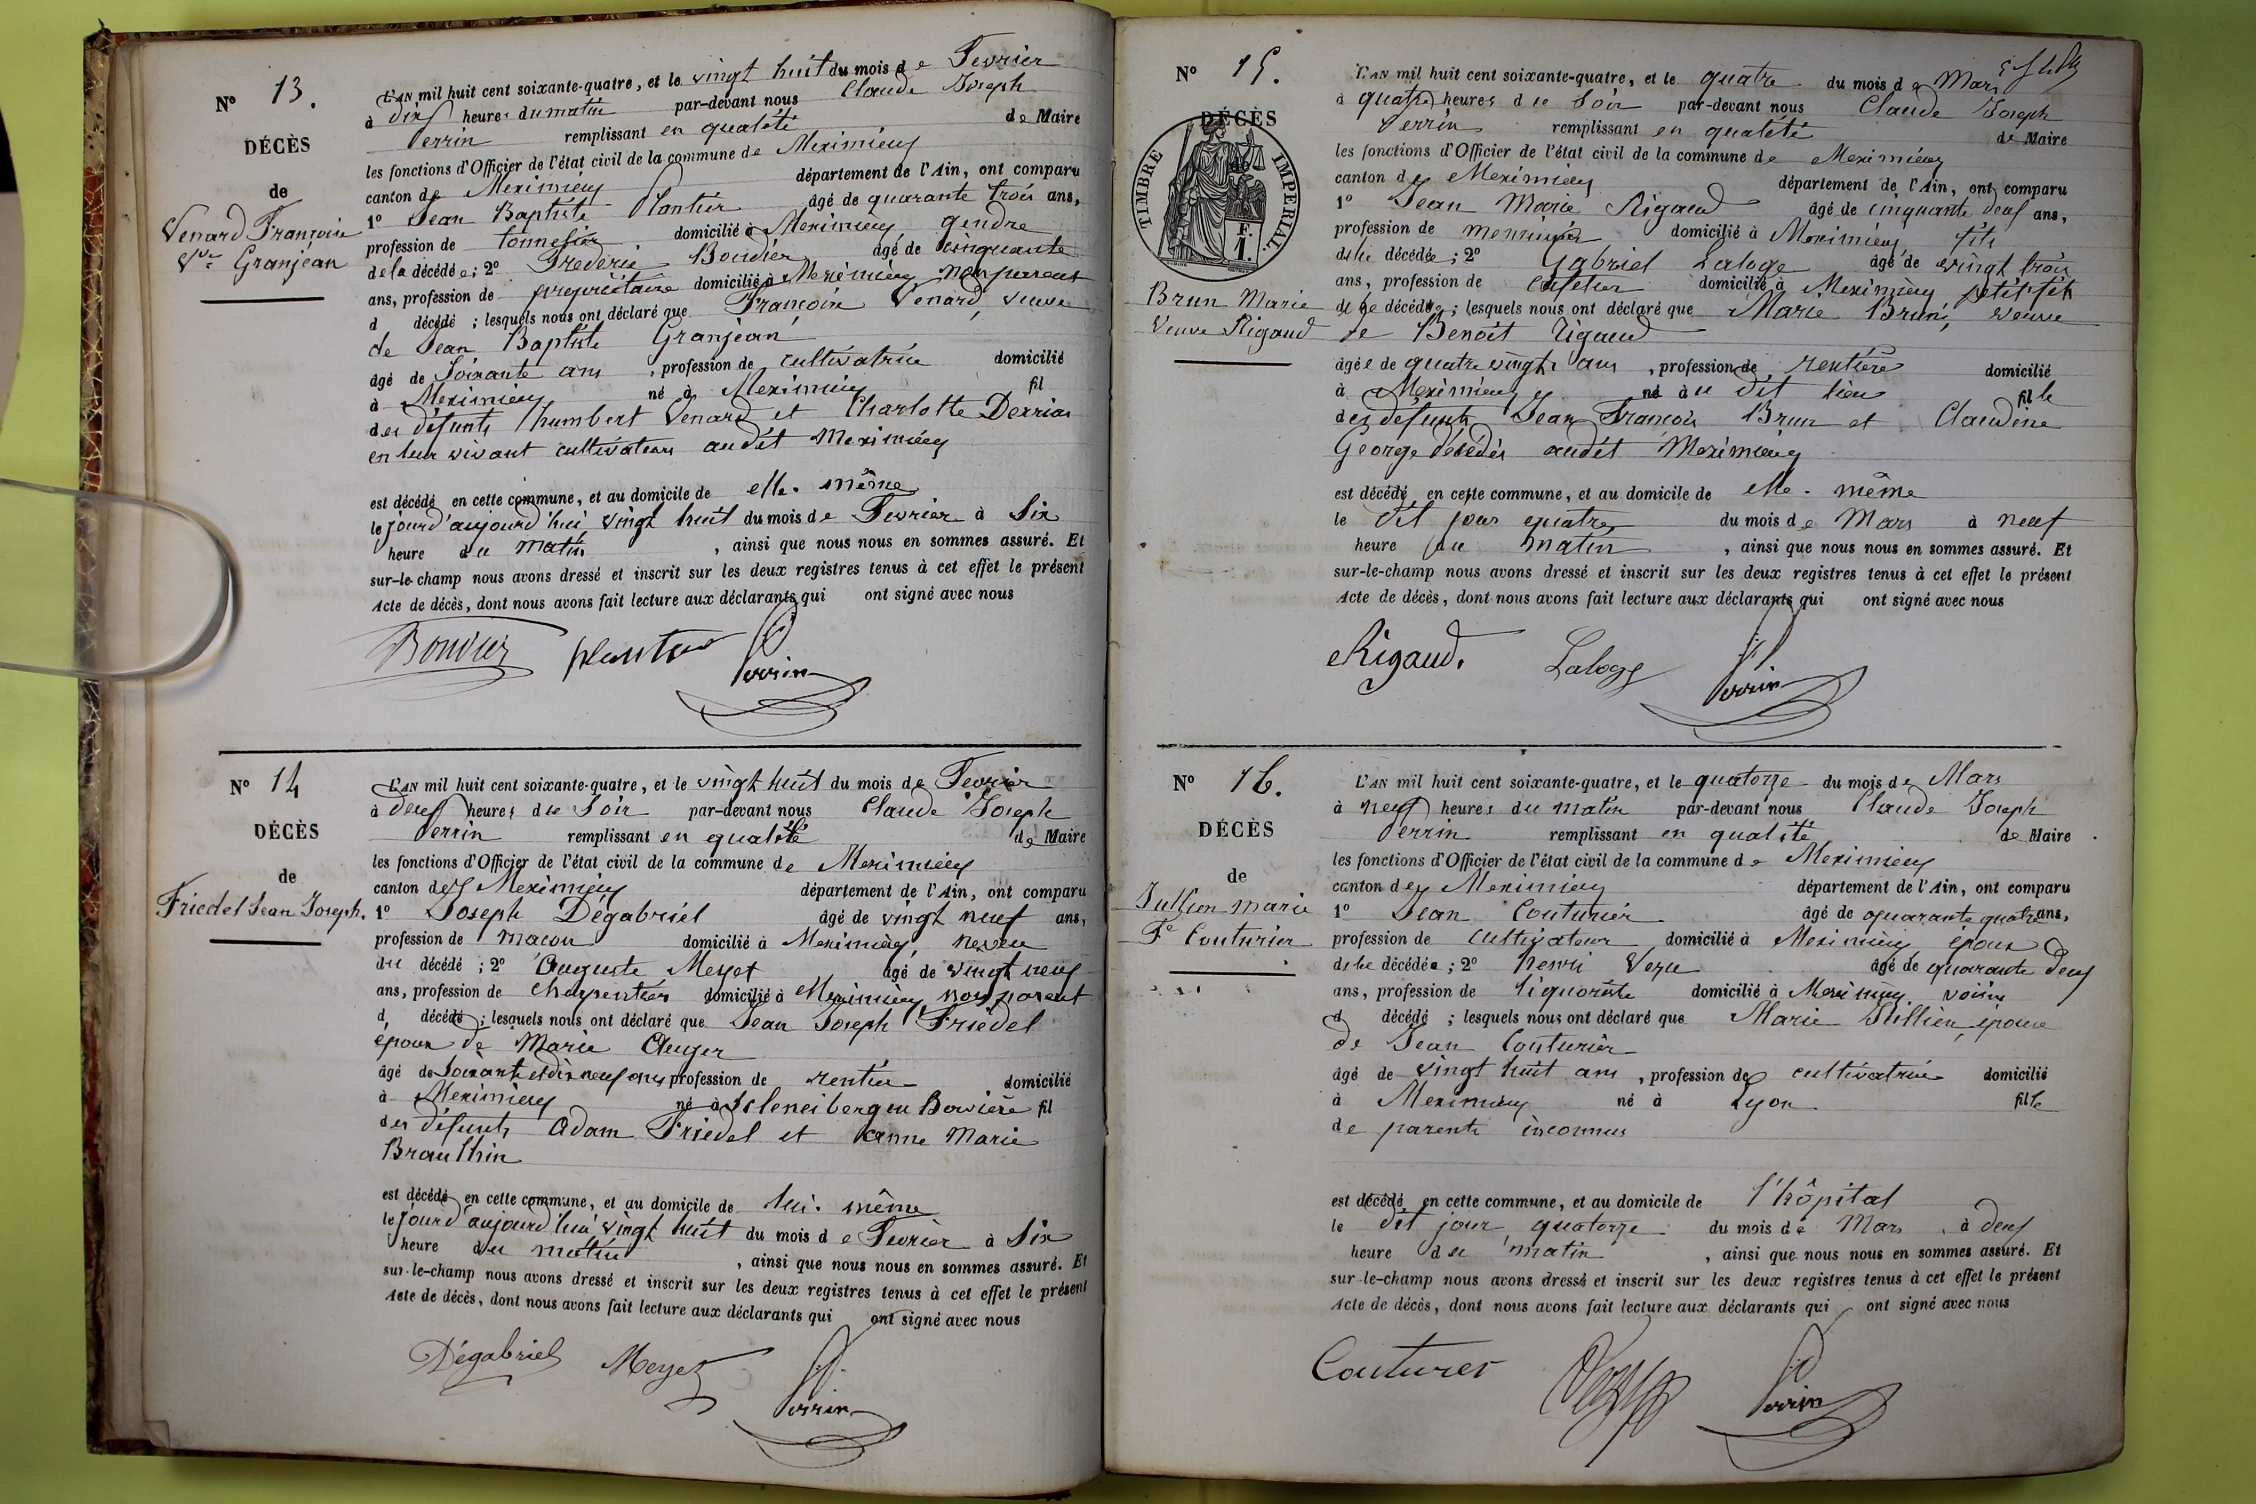 N° 13.
DÉCÈS
de
Venard Françoise
Vve Granjéan
L'AN mil huit cent soixante-quatre, et le vingt huit du mois de Fevrier
à dix heures du matin par-devant nous Claude Joseph
Perrin remplissant en qualité de Maire
les fonctions d'Officier de l'état civil de la commune de Meximieux
canton de Meximieux département de l'Ain, ont comparu
1° Jean Baptiste Plantier âgé de quarante trois ans,
profession de tonnelier domicilié à Meximieux, gendre
de la décédée; 2° Frederic Boudier âgé de cinquante
ans, profession de propriétaire domicilié à Meximieux non parent
d décédé ; lesquels nous ont déclaré que Françoise Venard, veuve
de Jean Baptiste Granjéan
âgé de Soixante ans , profession de cultivatrice domicilié
à Meximieux né à Meximieux fil
des défunts humbert Venard et Charlotte Derrias
en leur vivant cultivateurs audit Meximieux
est décédé en cette commune, et au domicile de elle-même
le jourd'aujourd'hui vingt huit du mois de Fevrier à Six
heure du matin , ainsi que nous nous en sommes assuré. Et
sur-le-champ nous avons dressé et inscrit sur les deux registres tenus à cet effet le présent
Acte de décès, dont nous avons fait lecture aux déclarants qui ont signé avec nous
Bouvier plantier Perrin
N° 14
DÉCÈS
de
Friedel Jean Joseph.
L'AN mil huit cent soixante-quatre, et le vingt huit du mois de Fevrier
à deux heures du Soir par-devant nous Claude Joseph
Perrin remplissant en qualité de Maire
les fonctions d'Officier de l'état civil de la commune de Meximieux
canton de Meximieux département de l'Ain, ont comparu
1° Joseph Dégabriel âgé de vingt neuf ans,
profession de macon domicilié à Meximieux, neveu
du décédé ; 2° Auguste Meyet âgé de vingt neuf
ans, profession de Charpentier domicilié à Meximieux non parent
d décédé ; lesquels nous ont déclaré que Jean Joseph Friedel
époux de Marie Auger
âgé de Soixante et dix neuf ans profession de rentier domicilié
à Meximieux né à en Bavière fil
des défunts Adam Friedel et anne Marie
Brauthin
est décédé en cette commune, et au domicile de lui-même
le jourd'aujourd'hui vingt huit du mois de Fevrier à Six
heure du matin , ainsi que nous nous en sommes assuré. Et
sur-le-champ nous avons dressé et inscrit sur les deux registres tenus à cet effet le présent
Acte de décès, dont nous avons fait lecture aux déclarants qui ont signé avec nous
Dégabriel Meyet Perrin
N° 15.
DÉCÈS
de
TIMBRE IMPÉRIAL.
F.
1.
Brun Marie
Veuve Rigaud
L'AN mil huit cent soixante-quatre, et le quatre du mois de Mars
à quatre heures du Soir par-devant nous Claude Joseph
Perrin remplissant en qualité de Maire
les fonctions d'Officier de l'état civil de la commune de Meximieux
canton de Meximieux département de l'Ain, ont comparu
1° Jean Marie Rigaud âgé de cinquante deux ans,
profession de menuisier domicilié à Meximieux, fils
de la décédée ; 2° Gabriel Laloge âgé de vingt trois
ans, profession de domicilié à Meximieux petit-fils
de la décédée ; lesquels nous ont déclaré que Marie Brun, veuve
de Benoit Rigaud
âgée de quatre vingts ans , profession de rentière domicilié
à Meximieux né à u dit lieu fille
des défunts Jean François Brun et Claudine
George décédés audit Meximieux
est décédé en cette commune, et au domicile de elle-même
le dit jour quatre du mois de Mars à neuf
heure du matin , ainsi que nous nous en sommes assuré. Et
sur-le-champ nous avons dressé et inscrit sur les deux registres tenus à cet effet le présent
Acte de décès, dont nous avons fait lecture aux déclarants qui ont signé avec nous
Rigaud. Laloge Perrin
N° 16.
DÉCÈS
de
Jullien marie
Fe Couturier
L'AN mil huit cent soixante-quatre, et le quatorze du mois de Mars
à neuf heures du matin par-devant nous Claude Joseph
Perrin remplissant en qualité de Maire
les fonctions d'Officier de l'état civil de la commune de Meximieux
canton de Meximieux département de l'Ain, ont comparu
1° Jean Couturier âgé de quarante quatre ans,
profession de cultivateur domicilié à Meximieux époux
de la décédée ; 2° henri Veru âgé de quarante deux
ans, profession de liquoriste domicilié à Meximieux voisin
d décédé ; lesquels nous ont déclaré que Marie Jullien, épouse
de Jean Couturier
âgé de vingt huit ans , profession de cultivatrice domicilié
à Meximieux né à Lyon fille
de parents inconnus
est décédé en cette commune, et au domicile de l'hôpital
le dit jour quatorze du mois de Mars à deux
heure du matin , ainsi que nous nous en sommes assuré. Et
sur-le-champ nous avons dressé et inscrit sur les deux registres tenus à cet effet le présent
Acte de décès, dont nous avons fait lecture aux déclarants qui ont signé avec nous
Couturier Perrin